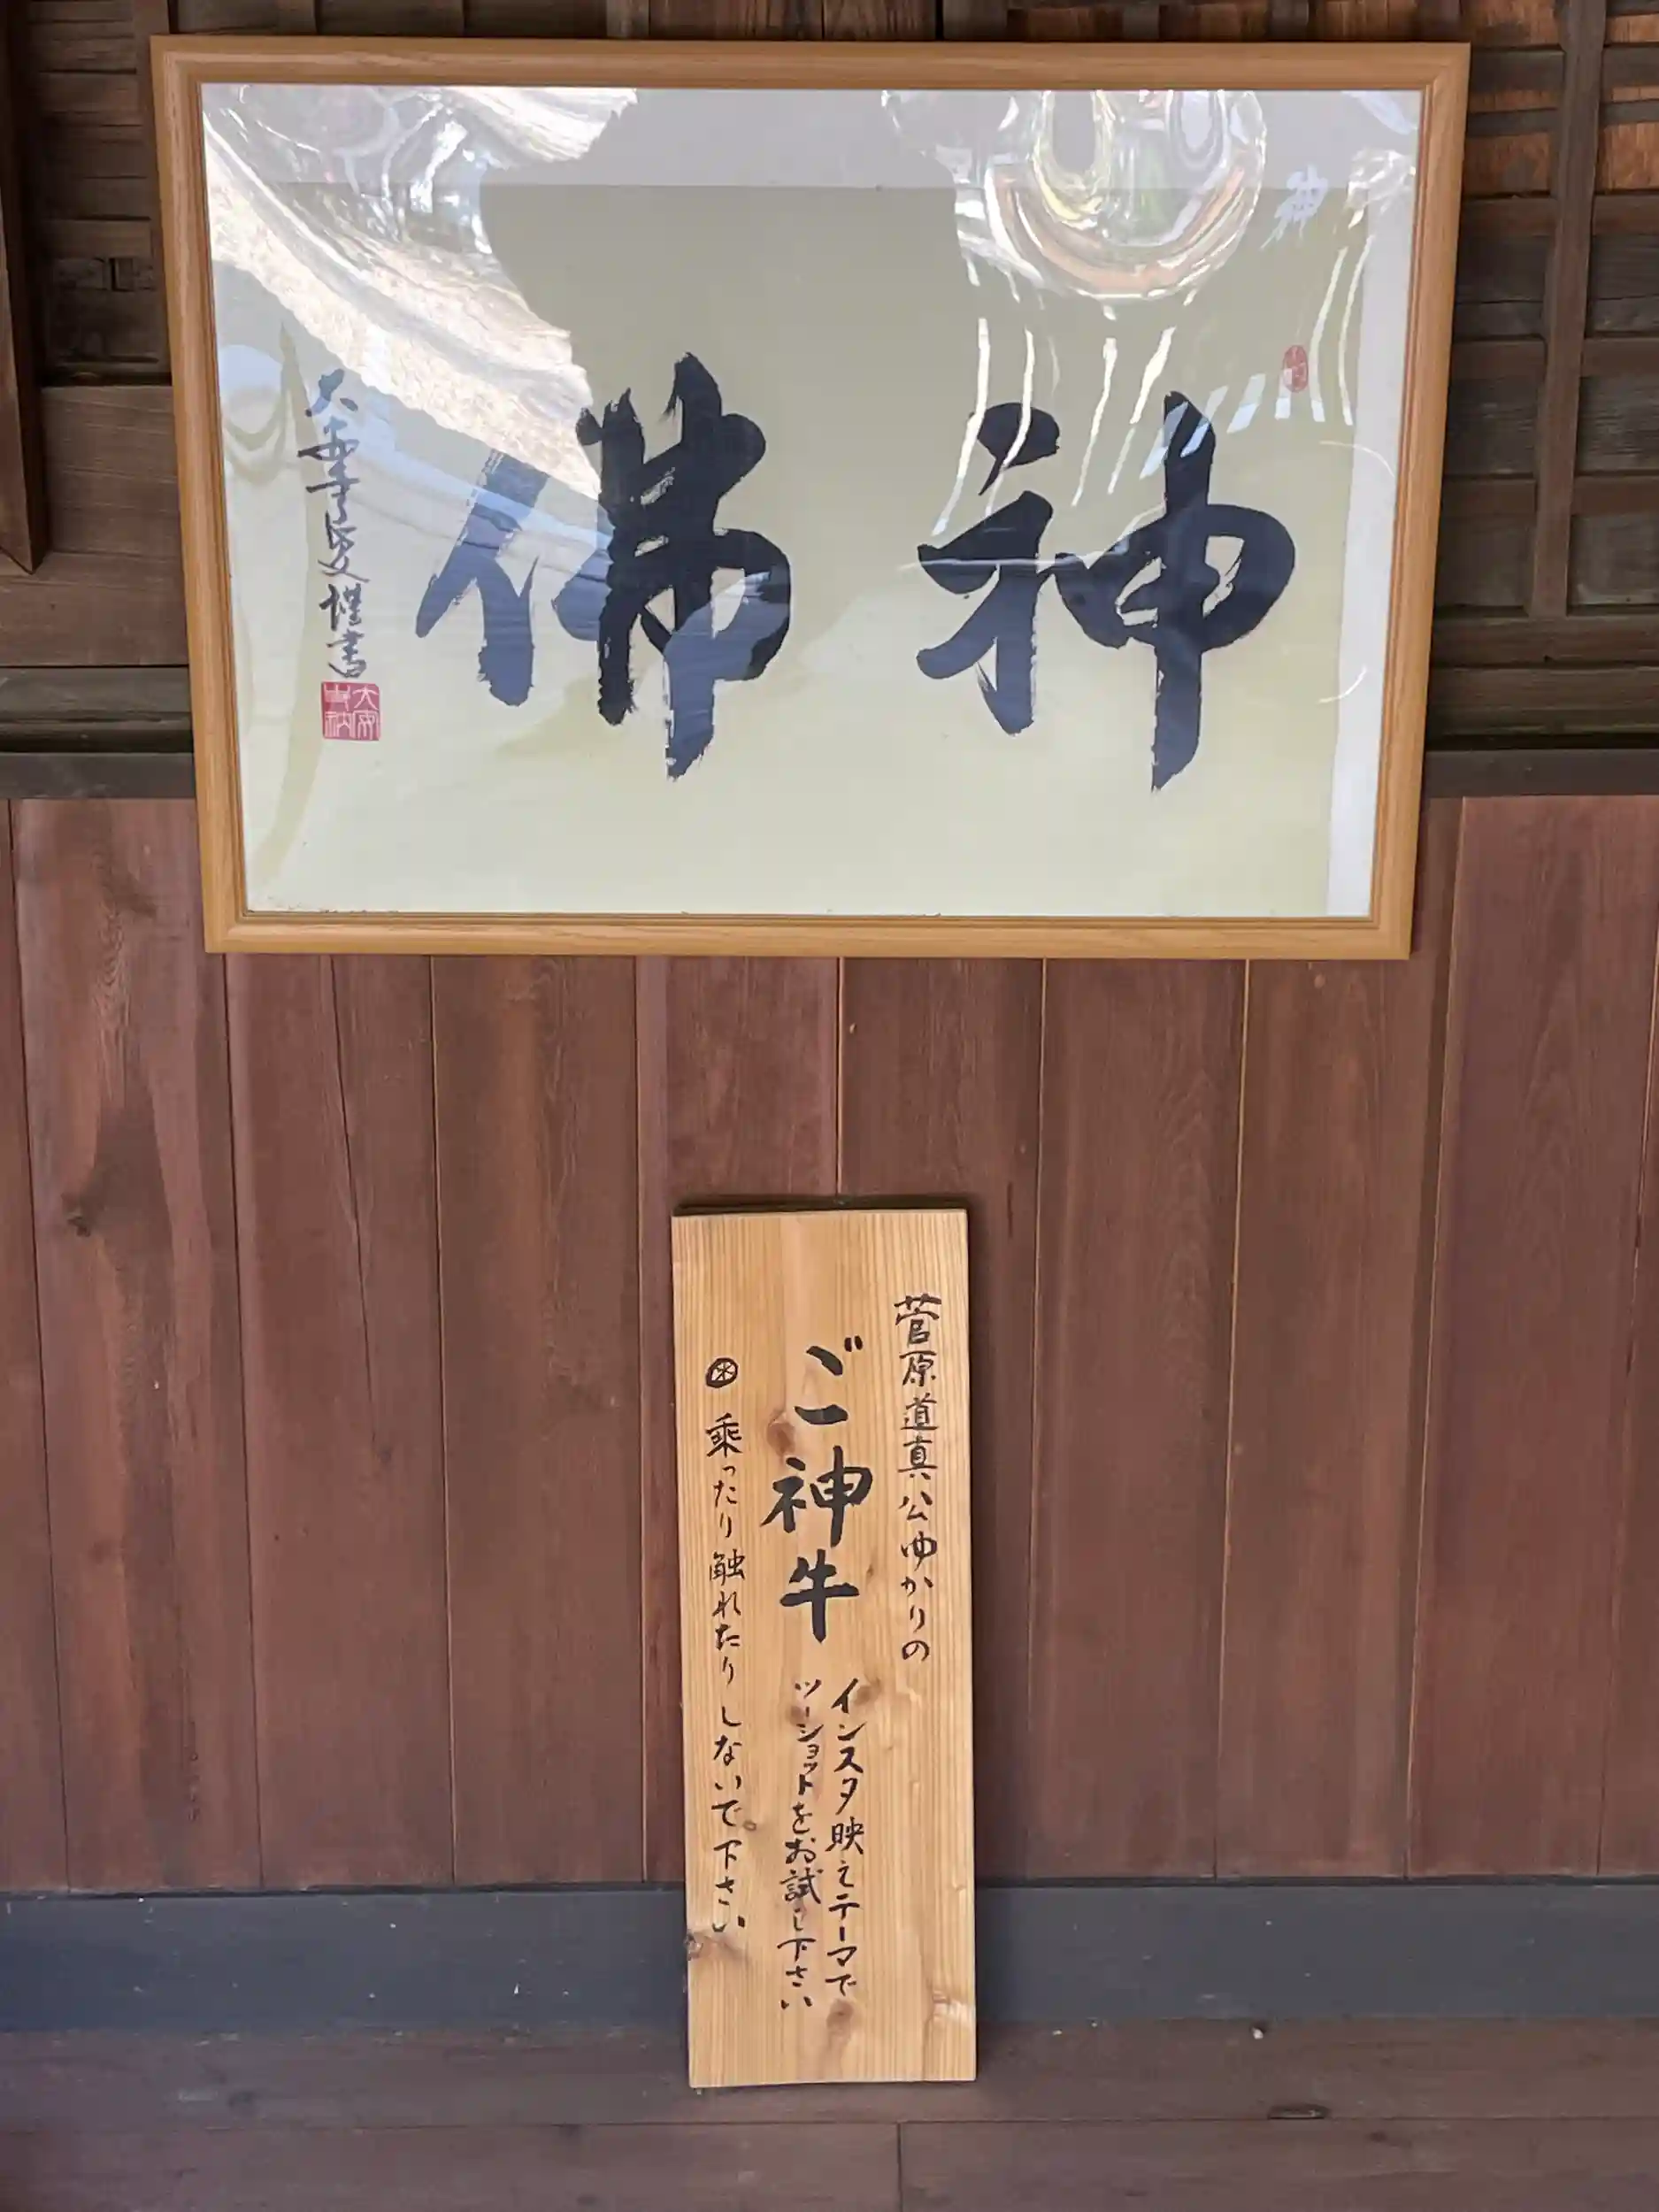 神佛
謹書
菅原道真公ゆかりの
ご神牛
インスタ映えテーマで
ツーショットをお試し下さい
㊟ 乗ったり触れたりしないで下さい